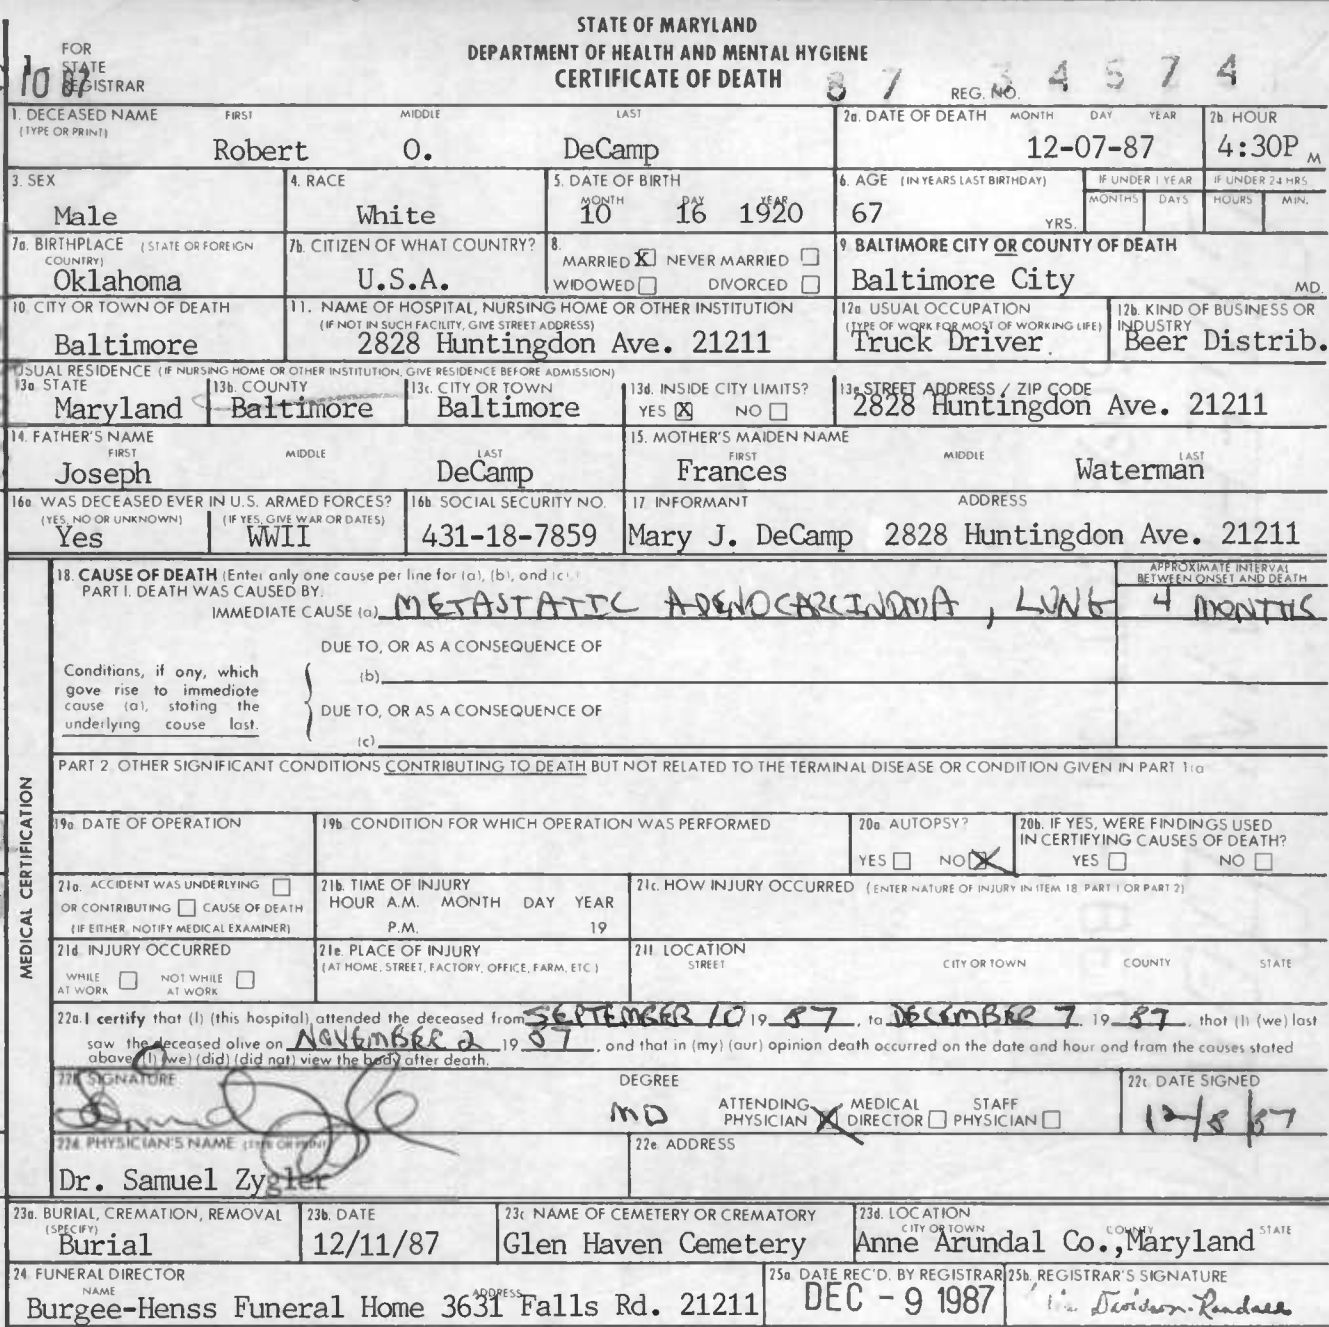 STATE OF MARYLAND
DEPARTMENT OF HEALTH AND MENTAL HYGIENE
CERTIFICATE OF DEATH
FOR
STATE
REGISTRAR
10 87
REG. NO. 87 34574
1. DECEASED NAME FIRST MIDDLE LAST
(TYPE OR PRINT)
Robert O. DeCamp
2a. DATE OF DEATH MONTH DAY YEAR
12-07-87
2b. HOUR
4:30P M
3. SEX
Male
4. RACE
White
5. DATE OF BIRTH
MONTH DAY YEAR
10 16 1920
6. AGE (IN YEARS LAST BIRTHDAY)
67 YRS.
IF UNDER 1 YEAR
MONTHS DAYS
IF UNDER 24 HRS
HOURS MIN.
7a. BIRTHPLACE (STATE OR FOREIGN
COUNTRY)
Oklahoma
7b. CITIZEN OF WHAT COUNTRY?
U.S.A.
8.
MARRIED X NEVER MARRIED
WIDOWED DIVORCED
9. BALTIMORE CITY OR COUNTY OF DEATH
Baltimore City MD.
10. CITY OR TOWN OF DEATH
Baltimore
11. NAME OF HOSPITAL, NURSING HOME OR OTHER INSTITUTION
(IF NOT IN SUCH FACILITY, GIVE STREET ADDRESS)
2828 Huntingdon Ave. 21211
12a. USUAL OCCUPATION
(TYPE OF WORK FOR MOST OF WORKING LIFE)
Truck Driver
12b. KIND OF BUSINESS OR
INDUSTRY
Beer Distrib.
USUAL RESIDENCE (IF NURSING HOME OR OTHER INSTITUTION, GIVE RESIDENCE BEFORE ADMISSION)
13a. STATE
Maryland
13b. COUNTY
Baltimore
13c. CITY OR TOWN
Baltimore
13d. INSIDE CITY LIMITS?
YES X NO
13e. STREET ADDRESS / ZIP CODE
2828 Huntingdon Ave. 21211
14. FATHER'S NAME
FIRST MIDDLE LAST
Joseph DeCamp
15. MOTHER'S MAIDEN NAME
FIRST MIDDLE LAST
Frances Waterman
16a. WAS DECEASED EVER IN U.S. ARMED FORCES?
(YES, NO OR UNKNOWN) (IF YES, GIVE WAR OR DATES)
Yes WWII
16b. SOCIAL SECURITY NO.
431-18-7859
17. INFORMANT ADDRESS
Mary J. DeCamp 2828 Huntingdon Ave. 21211
MEDICAL CERTIFICATION
18. CAUSE OF DEATH (Enter only one cause per line for (a), (b), and (c)
PART I. DEATH WAS CAUSED BY:
IMMEDIATE CAUSE (a) METASTATIC ADENOCARCINOMA, LUNG
APPROXIMATE INTERVAL
BETWEEN ONSET AND DEATH
4 MONTHS
DUE TO, OR AS A CONSEQUENCE OF
(b)
DUE TO, OR AS A CONSEQUENCE OF
(c)
Conditions, if any, which
gave rise to immediate
cause (a), stating the
underlying cause last.
PART 2 OTHER SIGNIFICANT CONDITIONS CONTRIBUTING TO DEATH BUT NOT RELATED TO THE TERMINAL DISEASE OR CONDITION GIVEN IN PART 1(a
19a. DATE OF OPERATION
19b. CONDITION FOR WHICH OPERATION WAS PERFORMED
20a. AUTOPSY?
YES NO X
20b. IF YES, WERE FINDINGS USED
IN CERTIFYING CAUSES OF DEATH?
YES NO
21a. ACCIDENT WAS UNDERLYING
OR CONTRIBUTING CAUSE OF DEATH
(IF EITHER, NOTIFY MEDICAL EXAMINER)
21b. TIME OF INJURY
HOUR A.M. MONTH DAY YEAR
P.M. 19
21c. HOW INJURY OCCURRED (ENTER NATURE OF INJURY IN ITEM 18 PART 1 OR PART 2)
21d. INJURY OCCURRED
WHILE NOT WHILE
AT WORK AT WORK
21e. PLACE OF INJURY
(AT HOME, STREET, FACTORY, OFFICE, FARM, ETC.)
21f. LOCATION
STREET CITY OR TOWN COUNTY STATE
22a. I certify that (I) (this hospital) attended the deceased from SEPTEMBER 10 19 87, to DECEMBER 7 19 87, that (I) (we) last
saw the deceased alive on NOVEMBER 2 19 87, and that in (my) (our) opinion death occurred on the date and hour and from the causes stated
above (I) (we) (did) (did not) view the body after death.
22b. SIGNATURE
DEGREE
MD
ATTENDING PHYSICIAN X MEDICAL DIRECTOR STAFF PHYSICIAN
22c. DATE SIGNED
12/8/87
22d. PHYSICIAN'S NAME (TYPE OR PRINT)
Dr. Samuel Zygler
22e. ADDRESS
23a. BURIAL, CREMATION, REMOVAL
(SPECIFY)
Burial
23b. DATE
12/11/87
23c. NAME OF CEMETERY OR CREMATORY
Glen Haven Cemetery
23d. LOCATION
CITY OR TOWN COUNTY STATE
Anne Arundal Co., Maryland
24. FUNERAL DIRECTOR
NAME ADDRESS
Burgee-Henss Funeral Home 3631 Falls Rd. 21211
25a. DATE REC'D. BY REGISTRAR
DEC - 9 1987
25b. REGISTRAR'S SIGNATURE
Davidson-Randall